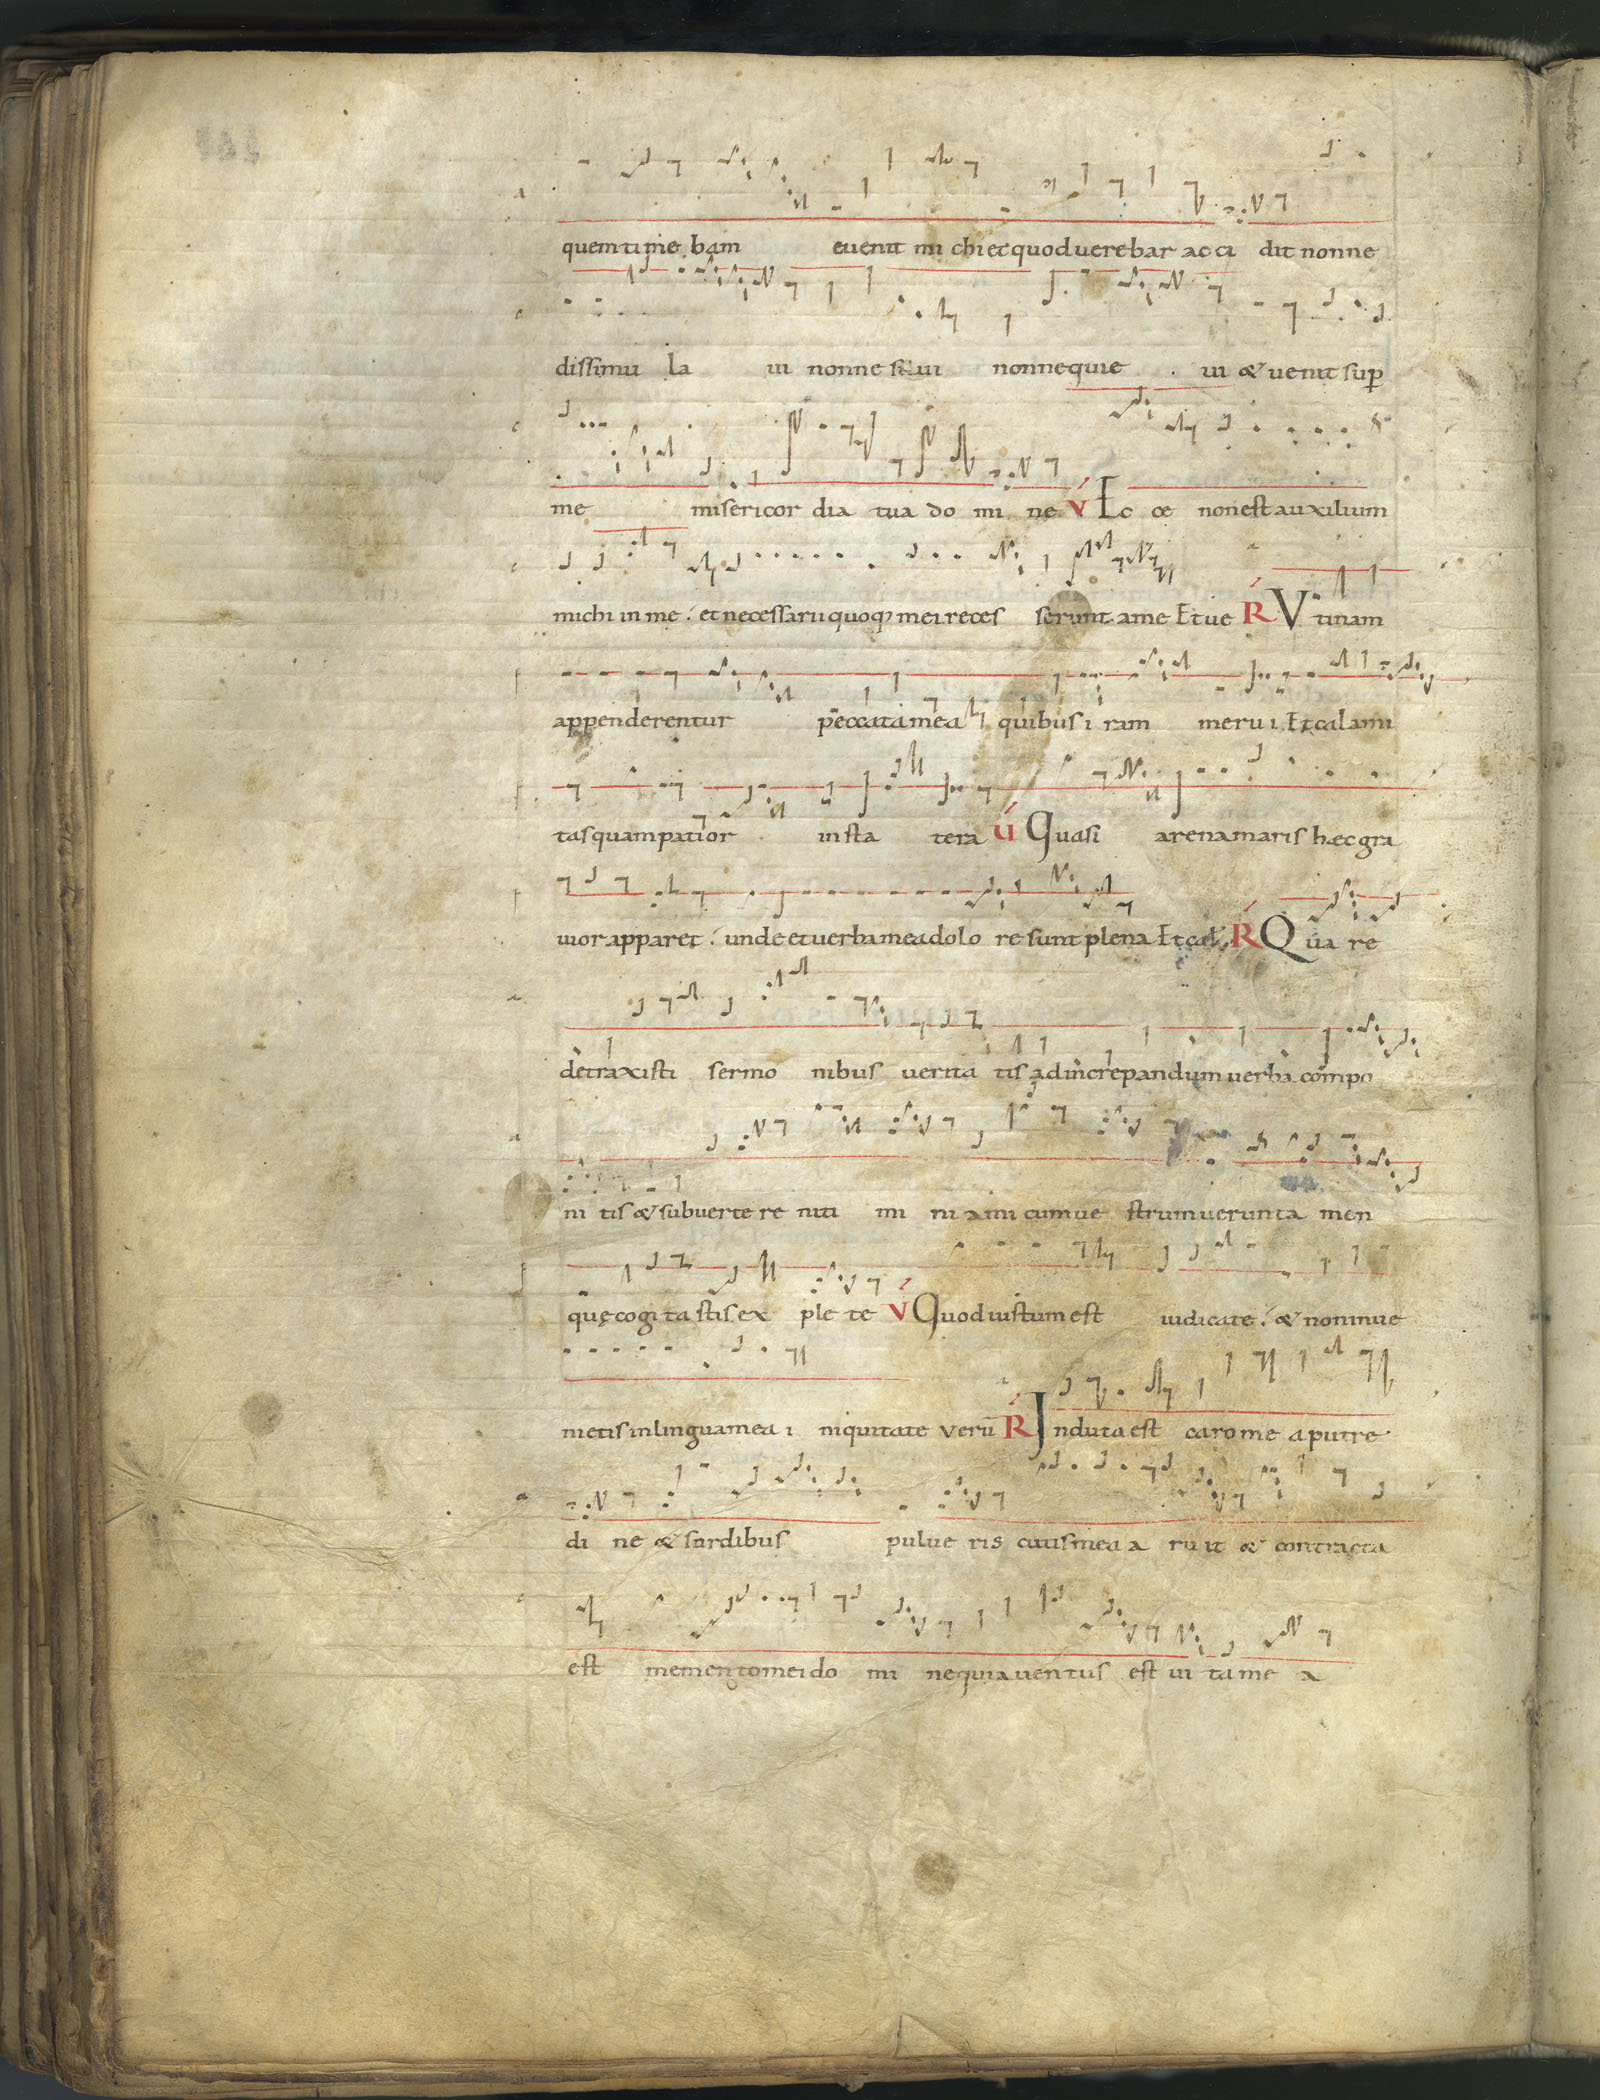 quem time bam euenit mi chi et quod uerebar acci dit nonne
dissimu la ui nonne silui nonne quie ui & uenit sup
me misericor dia tua do mi ne V Ec ce non est auxilium
michi in me. et necessarii quoq; mei reces serunt a me Et ue R V tinam
appenderentur peccata mea quibus i ram meru i. Et calami
tas quam patior in sta tera V Quasi arena maris hęc gra
uior apparet. unde et uerba mea dolo re sunt plena Et cal. R Q ua re
detraxisti sermo nibus uerita tis ad increpandum uerba compo
ni tis & subuerte re niti mi ni amicum ue strum uerunta men
quę cogi ta stis ex ple te V Quod iustum est iudicate. & non inue
nietis in lingua mea i niquitate verū R I nduta est caro me a putre
di ne & sordibus pulue ris cutis mea a ru it & contracta
est memento mei do mi ne quia uentus est ui ta me a